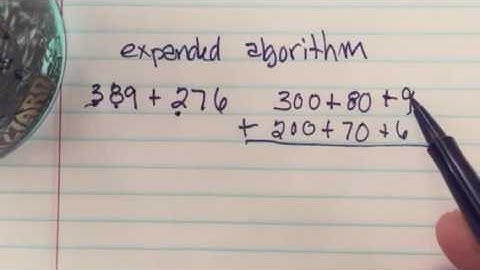 expanded algorithm
389 + 276 300 + 80 + 9
+ 200 + 70 + 6